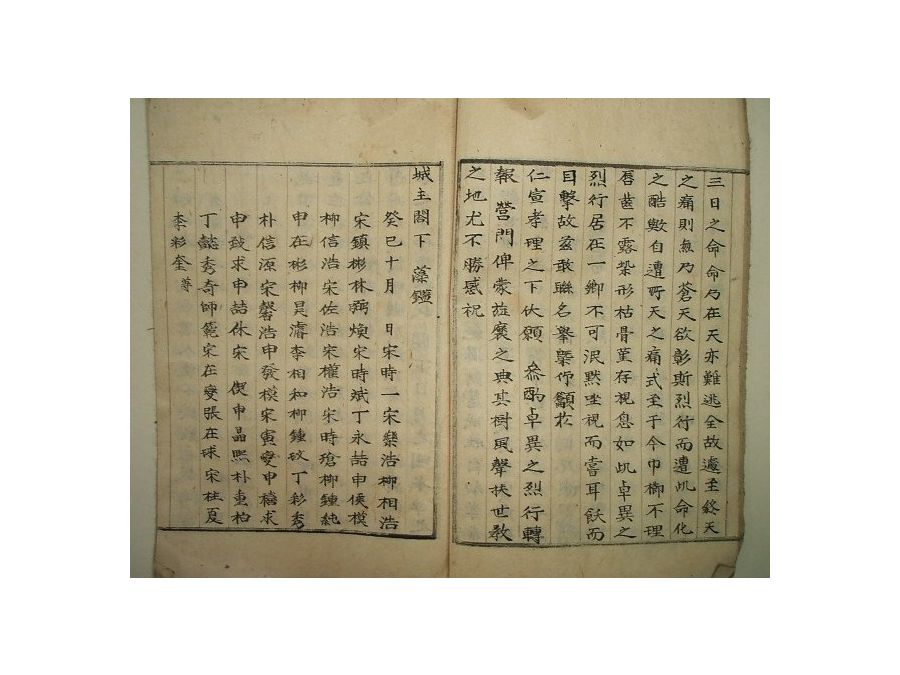 三日之命命旣在天亦難逃全故遽至終天
之痛則無乃蒼天欲彰斯烈行而遭此命化
之酷歟自遭所天之痛式至于今巾櫛不理
唇齒不露柴形枯骨菫存視息如此卓異之
烈行居在一鄕不可泯黙坐視而嘗耳飫而
目擊故玆敢聯名擧槩仰籲於
仁宣孝理之下伏願 叅酌卓異之烈行轉
報 營門俾蒙旌褒之典其樹風聲扶世敎
之地尤不勝感祝
城主閤下 藻鑑
癸巳十月 日宋時一宋欒浩柳相浩
宋鎭彬林弼煥宋時斌丁永喆申俠模
柳信浩宋佐浩宋權浩宋時瑲柳鍾純
申在彬柳昊濬李相和柳鍾玟丁彩秀
朴信源宋馨浩申發模宋寅燮申橲求
申致求申喆休宋 偰申晶熙朴重柏
丁懿秀奇師範宋在燮張在球宋柱夏
李彩奎等